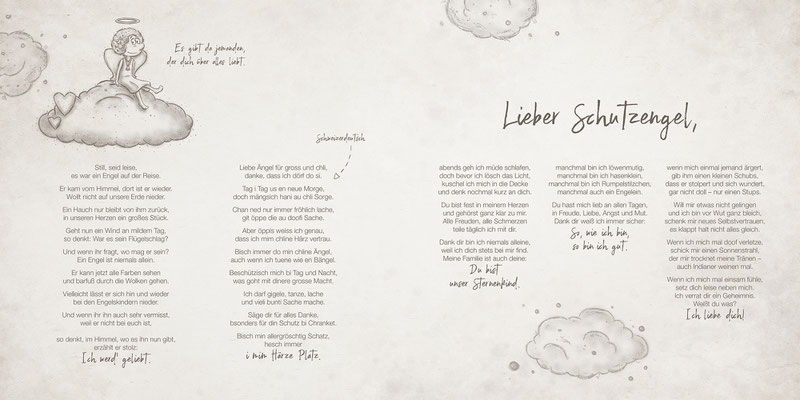 Es gibt da jemanden,
der dich über alles liebt.
Still, seid leise,
es war ein Engel auf der Reise.
Er kam vom Himmel, dort ist er wieder.
Wollt nicht auf unsere Erde nieder.
Ein Hauch nur bleibt von ihm zurück,
in unseren Herzen ein großes Stück.
Geht nun ein Wind an mildem Tag,
so denkt: War es sein Flügelschlag?
Und wenn ihr fragt, wo mag er sein?
Ein Engel ist niemals allein.
Er kann jetzt alle Farben sehen
und barfuß durch die Wolken gehen.
Vielleicht lässt er sich hin und wieder
bei den Engelskindern nieder.
Und wenn ihr ihn auch sehr vermisst,
weil er nicht bei euch ist.
so denkt, im Himmel, wo es ihn nun gibt,
erzählt er stolz:
Ich werd' geliebt.
Schweizerdeutsch
Liebe Ängel für gross und chli,
danke, dass ich dörf do si.
Tag i Tag us en neue Morge,
doch mängsich hani au chli Sorge.
Chan ned nur immer fröhlich lache,
git öppe die au doofi Sache.
Aber öppis weiss ich genau,
dass ich mim chline Härz vertrau.
Bisch immer do min chline Ängel,
auch wenn ich tuene wie en Bängel.
Beschützisch mich bi Tag und Nacht,
was goht mit dinere grosse Macht.
Ich darf giggele, tanze, lache
und vieli bunti Sache mache.
Säge dir für alles Danke,
bsonders für din Schutz bi Chranket.
Bisch min allergröschtig Schatz,
hesch immer
i mim Härze Platz.
Lieber Schutzengel,
abends geh ich müde schlafen,
doch bevor ich lösch das Licht,
kuschel ich mich in die Decke
und denk nochmal kurz an dich.
Du bist fest in meinem Herzen
und gehörst ganz klar zu mir.
Alle Freuden, alle Schmerzen
teile täglich ich mit dir.
Dank dir bin ich niemals alleine,
weil ich dich stets bei mir find.
Meine Familie ist auch deine:
Du bist
unser Sternenkind.
manchmal bin ich löwenmutig,
manchmal bin ich hasenklein,
manchmal bin ich Rumpelstilzchen,
manchmal auch ein Engelein.
Du hast mich lieb an allen Tagen,
in Freude, Liebe, Angst und Mut.
Dank dir weiß ich immer sicher:
So, wie ich bin,
so bin ich gut.
wenn mich einmal jemand ärgert,
gib ihm einen kleinen Schubs,
dass er stolpert und sich wundert,
gar nicht doll – nur einen Stups.
Will mir etwas nicht gelingen
und ich bin vor Wut ganz bleich,
schenk mir neues Selbstvertrauen,
es klappt halt nicht alles gleich.
Wenn ich mich mal doof verletze,
schick mir einen Sonnenstrahl,
der mir trocknet meine Tränen –
auch Indianer weinen mal.
Wenn ich mich mal einsam fühle,
setz dich leise neben mich.
Ich verrat dir ein Geheimnis.
Weißt du was?
Ich liebe dich!